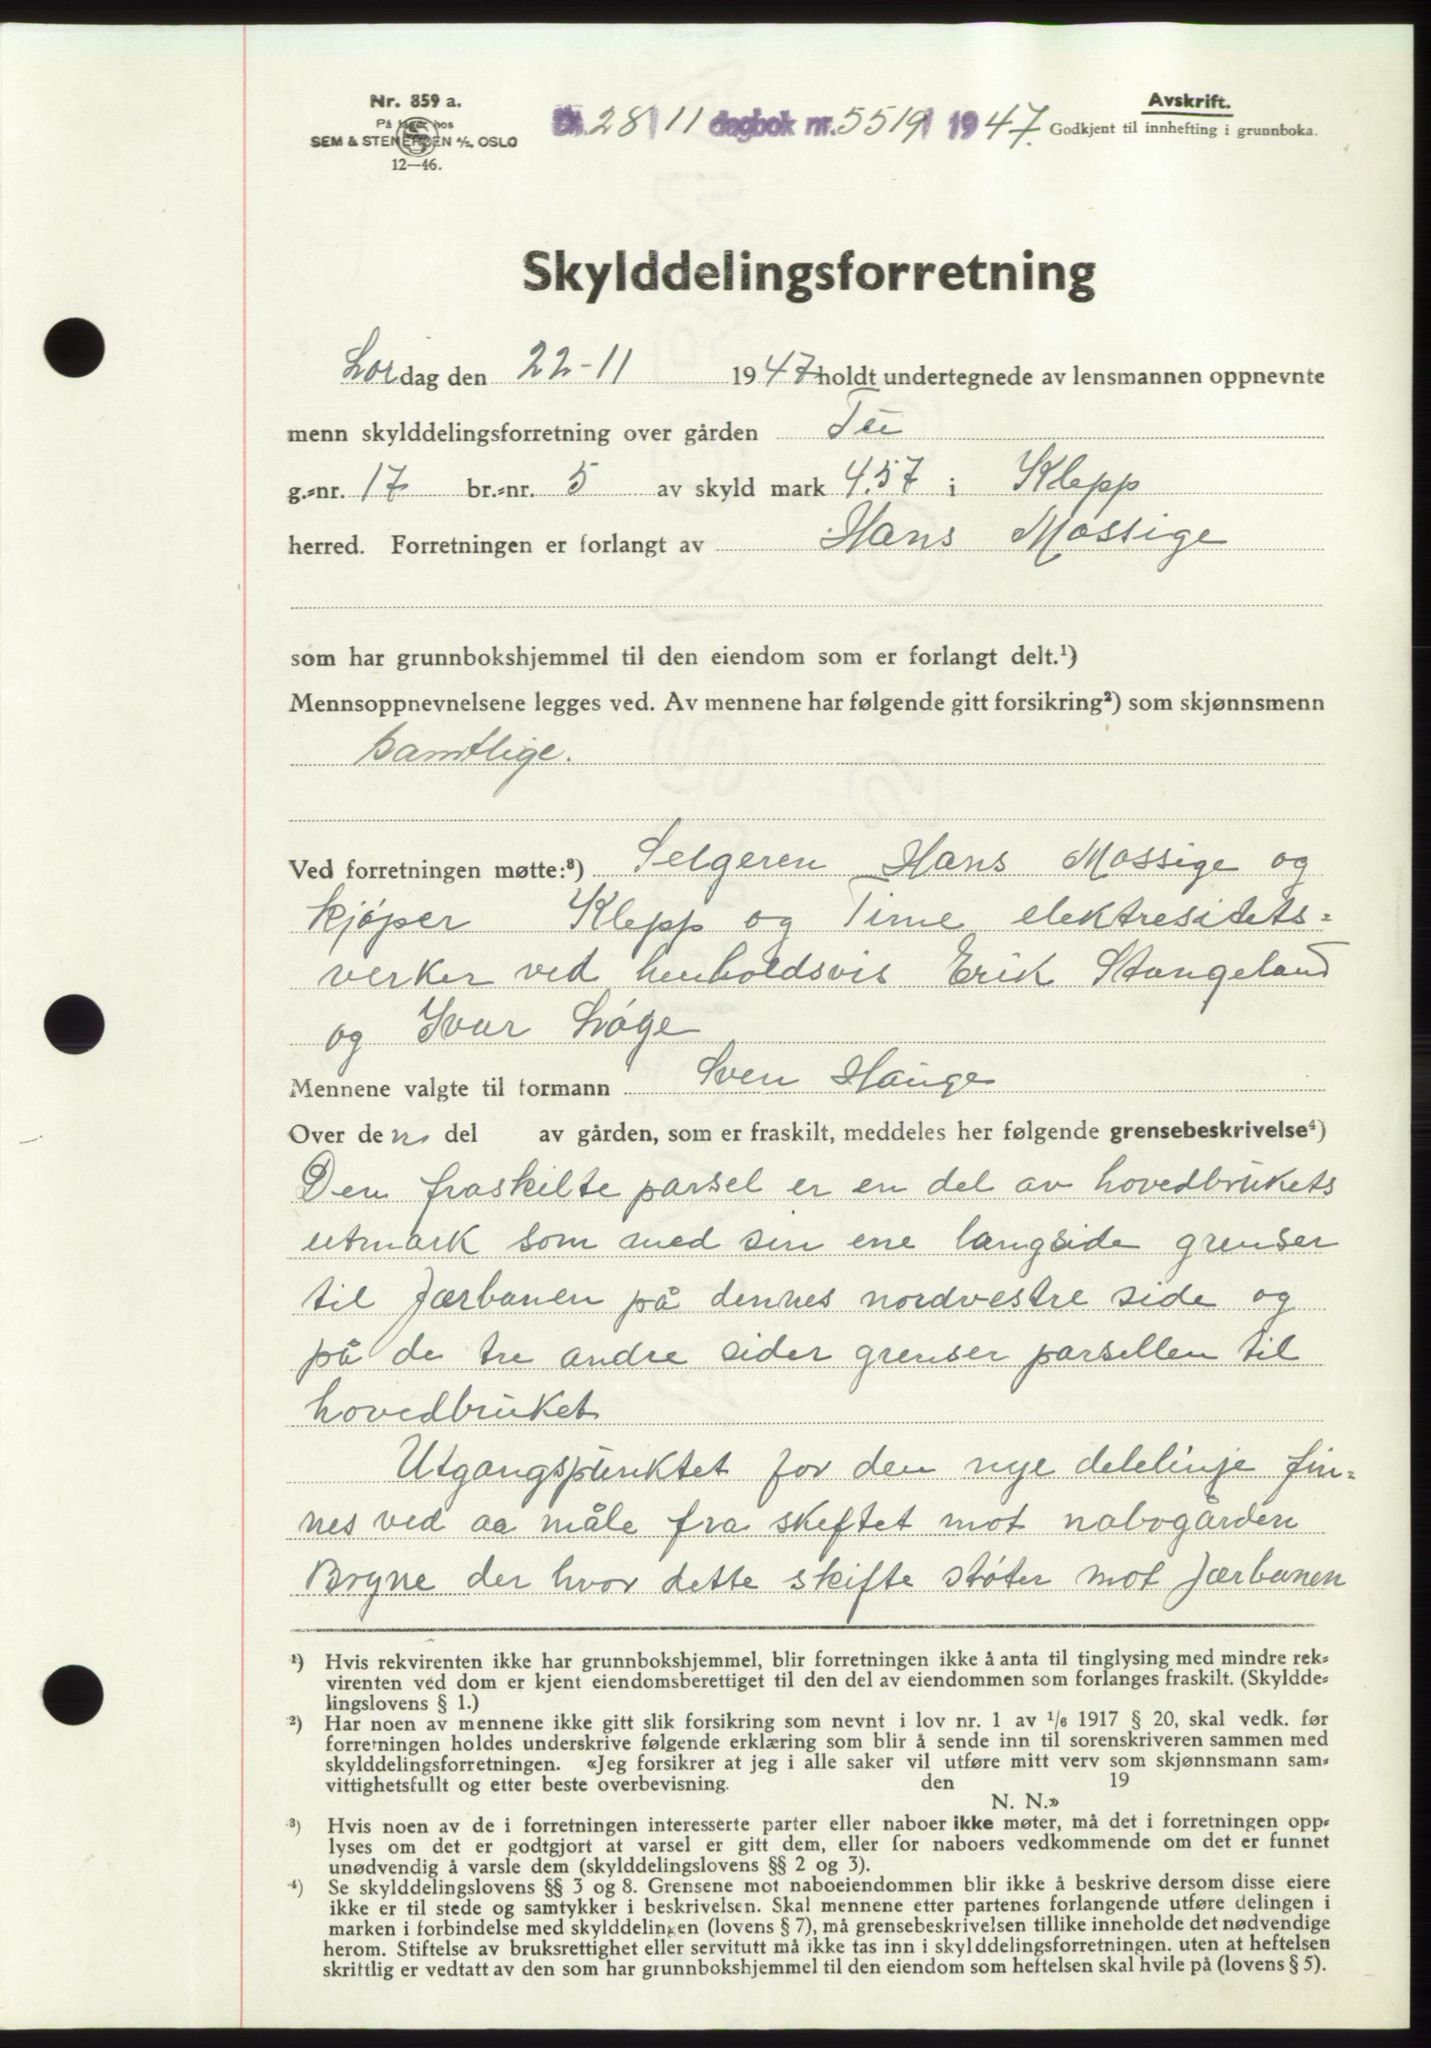 Nr. 859 a.
På lager hos
SEM & STENERSEN A/S, OSLO
12—46.
Dl. 28/11 dagbok nr. 5519 1947.
Avskrift.
Godkjent til innhefting i grunnboka.
Skylddelingsforretning
Lørdag den 22-11 1947 holdt undertegnede av lensmannen oppnevnte
menn skylddelingsforretning over gården Tu
g.=nr. 17 br.=nr. 5 av skyld mark 4.57 i Klepp
herred. Forretningen er forlangt av Hans Mossige
som har grunnbokshjemmel til den eiendom som er forlangt delt.¹)
Mennsoppnevnelsene legges ved. Av mennene har følgende gitt forsikring²) som skjønnsmenn
samtlige.
Ved forretningen møtte:³) Selgeren Hans Mossige og
kjøper Klepp og Time elektresitets=
verker ved henholdsvis Erik Stangeland
og Ivar Løge
Mennene valgte til formann Sven Hauge
Over den del av gården, som er fraskilt, meddeles her følgende grensebeskrivelse⁴)
Den fraskilte parsel er en del av hovedbrukets
utmark som med sin ene langside grenser
til Jærbanen på dennes nordvestre side og
på de tre andre sider grenser parsellen til
hovedbruket
Utgangspunktet for den nye delelinje fin=
nes ved aa måle fra skeftet mot nabogården
Bryne der hvor dette skifte støter mot Jærbanen
¹) Hvis rekvirenten ikke har grunnbokshjemmel, blir forretningen ikke å anta til tinglysing med mindre rek=
virenten ved dom er kjent eiendomsberettiget til den del av eiendommen som forlanges fraskilt. (Skyldde=
lingslovens § 1.)
²) Har noen av mennene ikke gitt slik forsikring som nevnt i lov nr. 1 av 1/6 1917 § 20, skal vedk. før
forretningen holdes underskrive følgende erklæring som blir å sende inn til sorenskriveren sammen med
skylddelingsforretningen. «Jeg forsikrer at jeg i alle saker vil utføre mitt verv som skjønnsmann sam=
vittighetsfullt og etter beste overbevisning. den 19
N. N.»
³) Hvis noen av de i forretningen interesserte parter eller naboer ikke møter, må det i forretningen opp=
lyses om det er godtgjort at varsel er gitt dem, eller for naboers vedkommende om det er funnet
unødvendig å varsle dem (skylddelingslovens §§ 2 og 3).
⁴) Se skylddelingslovens §§ 3 og 8. Grensene mot naboeiendommen blir ikke å beskrive dersom disse eiere
ikke er til stede og samtykker i beskrivelsen. Skal mennene etter partenes forlangende utføre delingen i
marken i forbindelse med skylddelingen (lovens § 7), må grensebeskrivelsen tillike inneholde det nødvendige
herom. Stiftelse av bruksrettighet eller servitutt må ikke tas inn i skylddelingsforretningen. uten at heftelsen
skriftlig er vedtatt av den som har grunnbokshjemmel til den eiendom som heftelsen skal hvile på (lovens § 5).